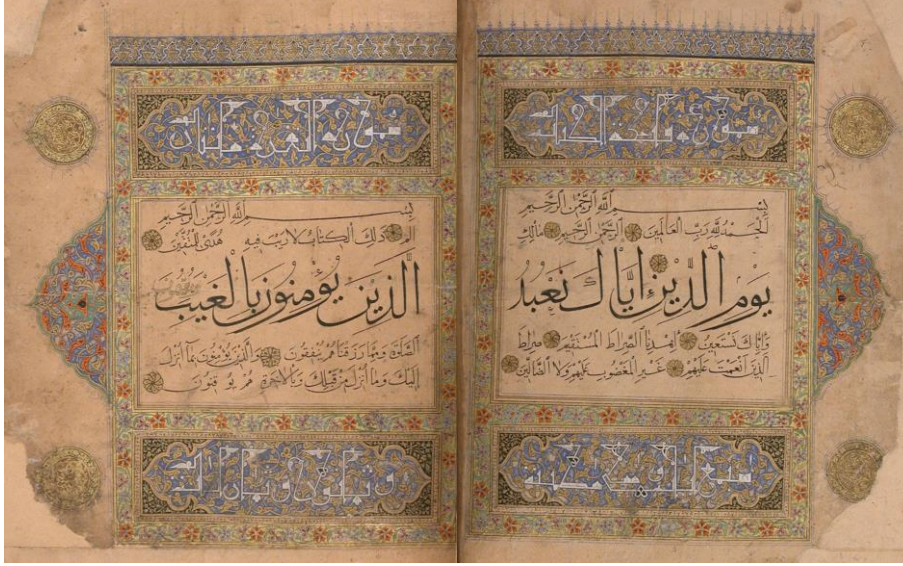 سورة فاتحة الكتاب
بِسْمِ ٱللَّهِ ٱلرَّحْمٰنِ ٱلرَّحِيمِ
الْحَمْدُ لِلَّهِ رَبِّ الْعَالَمِينَ الرَّحْمٰنِ الرَّحِيمِ مَالِكِ
يَوْمِ الدِّينِ إِيَّاكَ نَعْبُدُ
وَإِيَّاكَ نَسْتَعِينُ اهْدِنَا الصِّرَاطَ الْمُسْتَقِيمَ صِرَاطَ
الَّذِينَ أَنْعَمْتَ عَلَيْهِمْ غَيْرِ الْمَغْضُوبِ عَلَيْهِمْ وَلَا الضَّالِّينَ
سبع آيات
سورة البقرة مائتان
بِسْمِ ٱللَّهِ ٱلرَّحْمٰنِ ٱلرَّحِيمِ
الم ذٰلِكَ الْكِتَابُ لَا رَيْبَ فِيهِ هُدًى لِلْمُتَّقِينَ
الَّذِينَ يُؤْمِنُونَ بِالْغَيْبِ
الصَّلٰوةَ وَمِمَّا رَزَقْنَاهُمْ يُنْفِقُونَ وَالَّذِينَ يُؤْمِنُونَ بِمَا أُنْزِلَ
إِلَيْكَ وَمَا أُنْزِلَ مِنْ قَبْلِكَ وَبِالْآخِرَةِ هُمْ يُوقِنُونَ